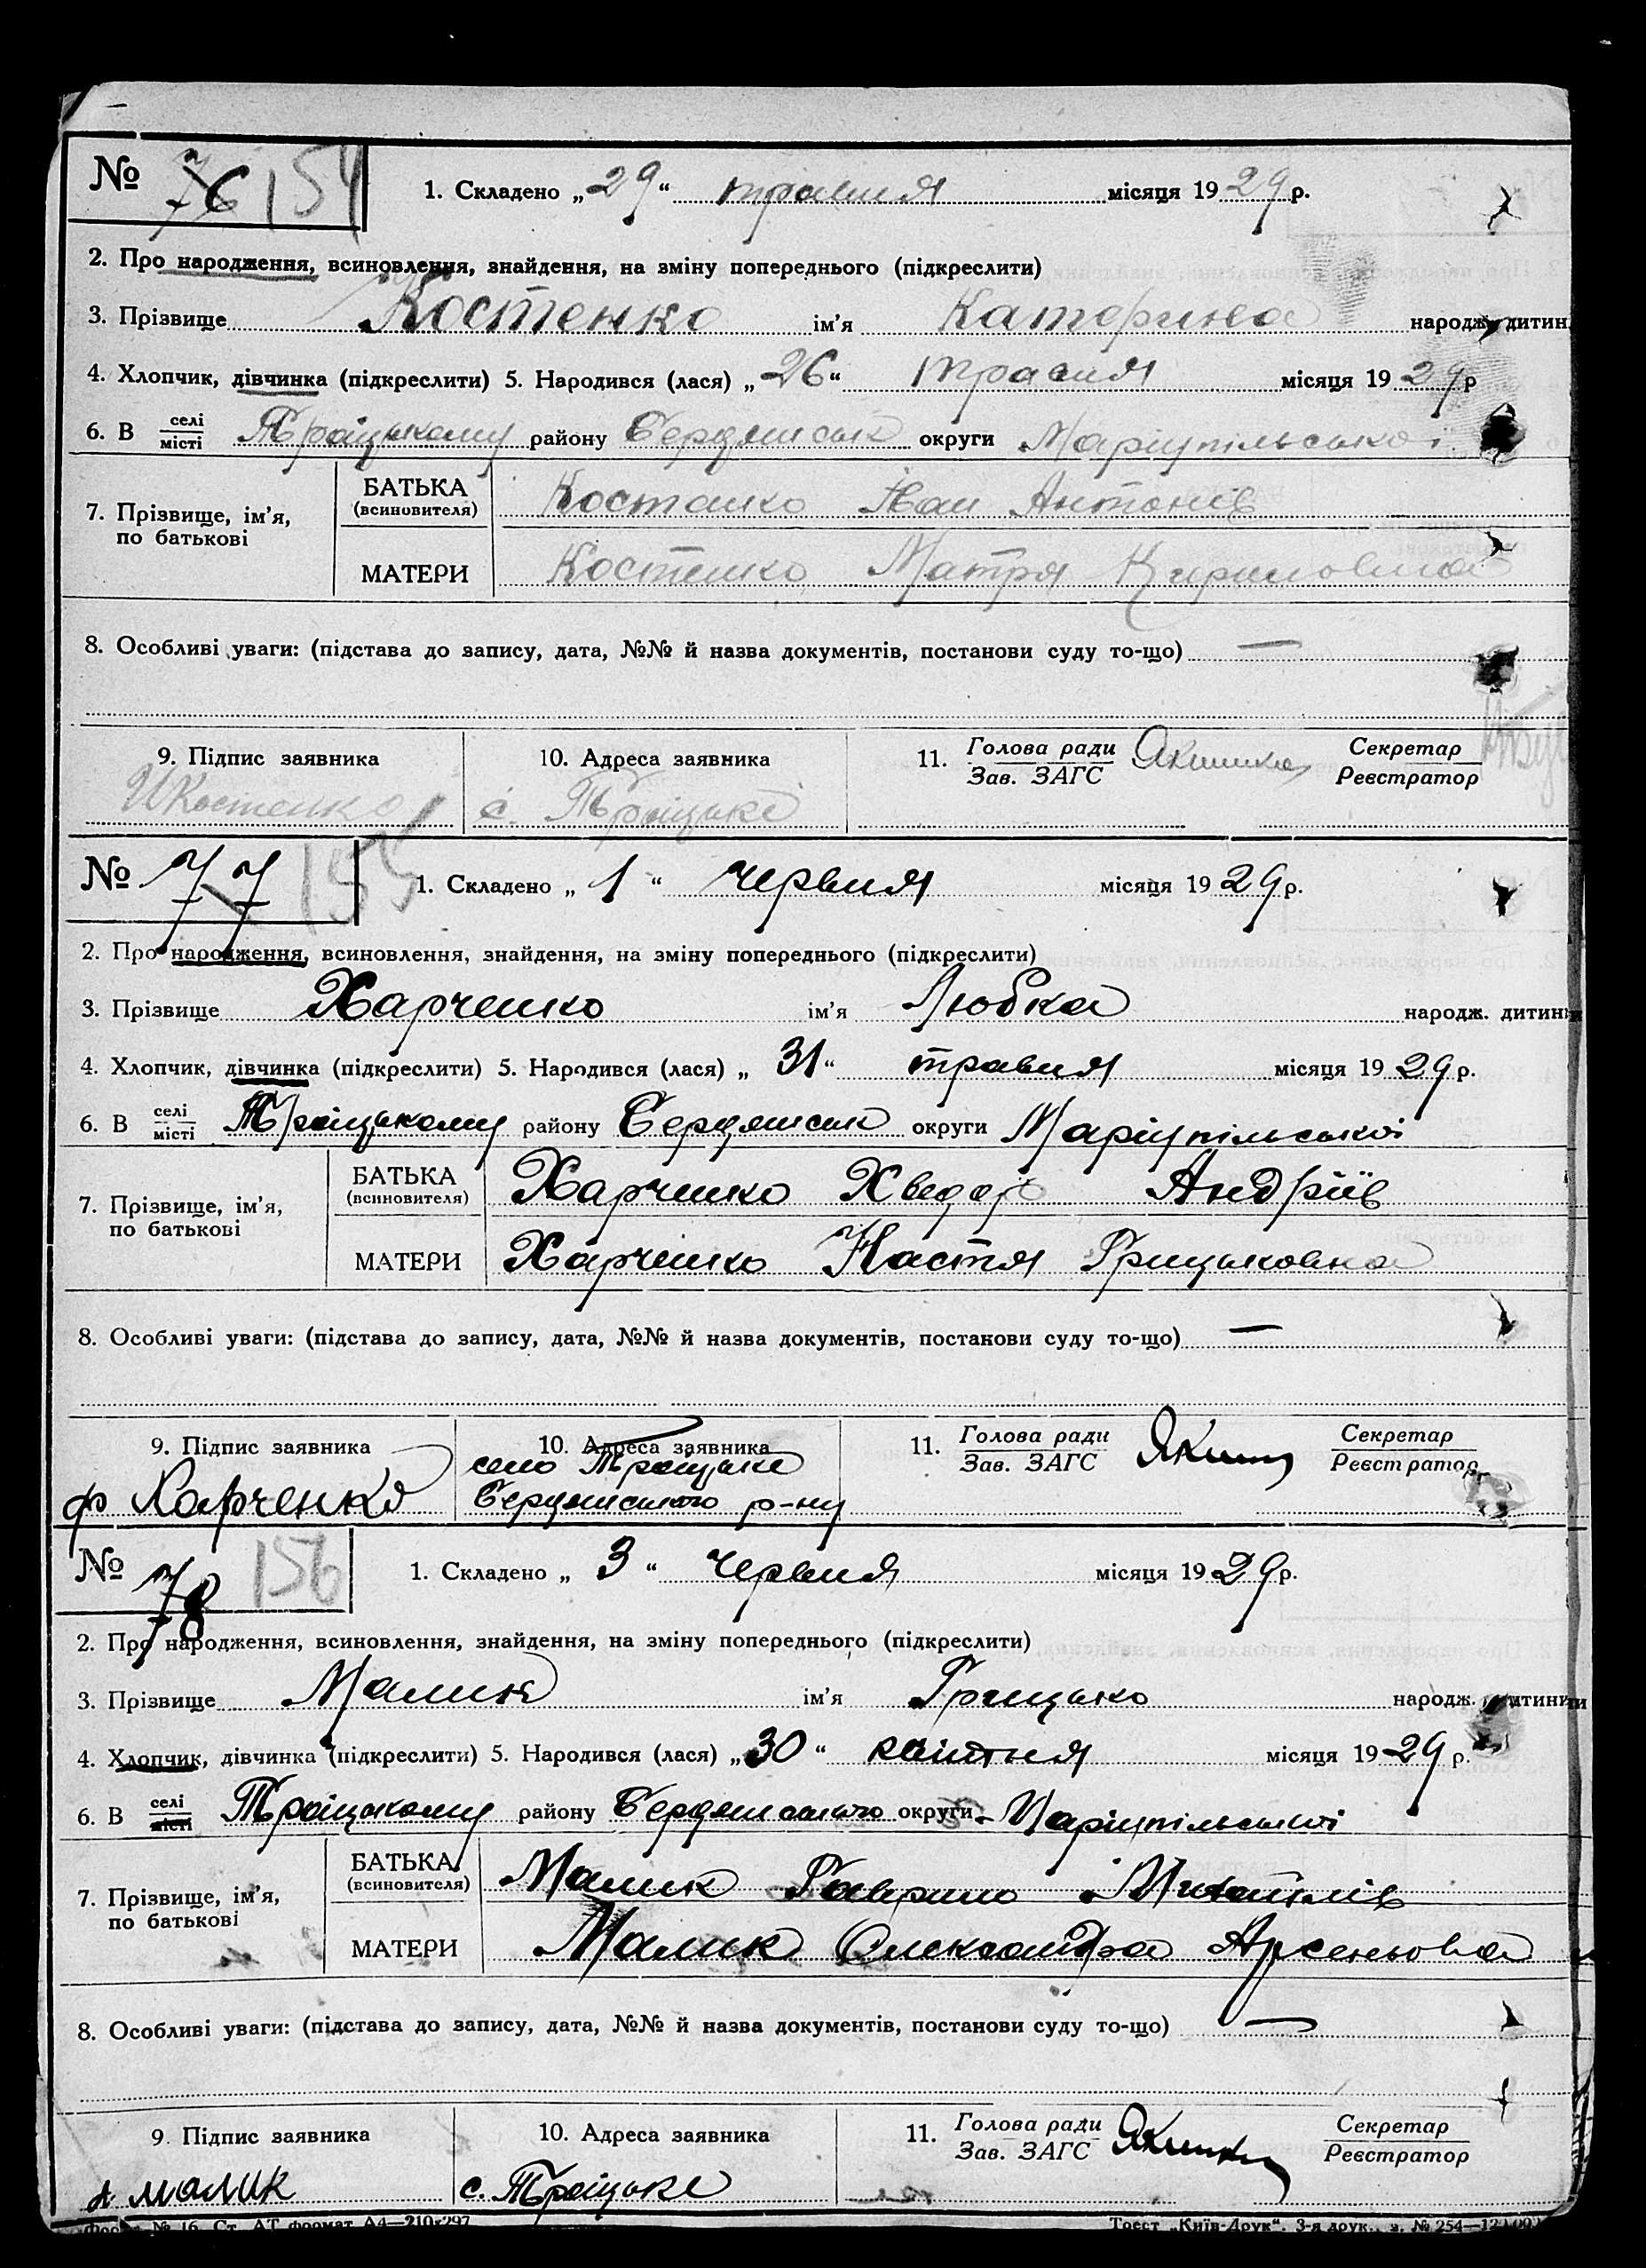 № 76 154
1. Складено „29“ травня місяця 1929 р.
2. Про народження, всиновлення, знайдення, на зміну попереднього (підкреслити)
3. Прізвище Костенко ім'я Катерина народж. дитин
4. Хлопчик, дівчинка (підкреслити) 5. Народився (лася) „26“ травня місяця 1929 р
6. В селі/місті Троїцькому району Бердянськ округи Маріупільської
7. Прізвище, ім'я, по батькові
БАТЬКА (всиновителя) Костенко Іван Антонів
МАТЕРИ Костенко Мотря Кириловна
8. Особливі уваги: (підстава до запису, дата, №№ й назва документів, постанови суду то-що) —
9. Підпис заявника 10. Адреса заявника 11. Голова ради/Зав. ЗАГС Секретар/Реєстратор
ИКостенко с. Троїцьке
№ 77 155
1. Складено „1“ червня місяця 1929 р.
2. Про народження, всиновлення, знайдення, на зміну попереднього (підкреслити)
3. Прізвище Харченко ім'я Любка народж. дитини
4. Хлопчик, дівчинка (підкреслити) 5. Народився (лася) „31“ травня місяця 1929 р.
6. В селі/місті Троїцькому району Бердянськ округи Маріупільської
7. Прізвище, ім'я, по батькові
БАТЬКА (всиновителя) Харченко Хведор Андріїв
МАТЕРИ Харченко Настя Грицьковна
8. Особливі уваги: (підстава до запису, дата, №№ й назва документів, постанови суду то-що) —
9. Підпис заявника 10. Адреса заявника 11. Голова ради/Зав. ЗАГС Секретар/Реєстратор
ф Харченко село Троїцьке
Бердянського р-ну
№ 78 156
1. Складено „3“ червня місяця 1929 р.
2. Про народження, всиновлення, знайдення, на зміну попереднього (підкреслити)
3. Прізвище Малик ім'я Грицько народж. дитини
4. Хлопчик, дівчинка (підкреслити) 5. Народився (лася) „30“ квітня місяця 1929 р.
6. В селі/місті Троїцькому району Бердянського округи Маріупільської
7. Прізвище, ім'я, по батькові
БАТЬКА (всиновителя) Малик Гаврило Михайлів
МАТЕРИ Малик Олександра Арсеньовна
8. Особливі уваги: (підстава до запису, дата, №№ й назва документів, постанови суду то-що) —
9. Підпис заявника 10. Адреса заявника 11. Голова ради/Зав. ЗАГС Секретар/Реєстратор
малик с. Троїцьке
№ 16. Ст. АТ формат А4—210×297 Трест „Київ-Друк“. 3-я друк.